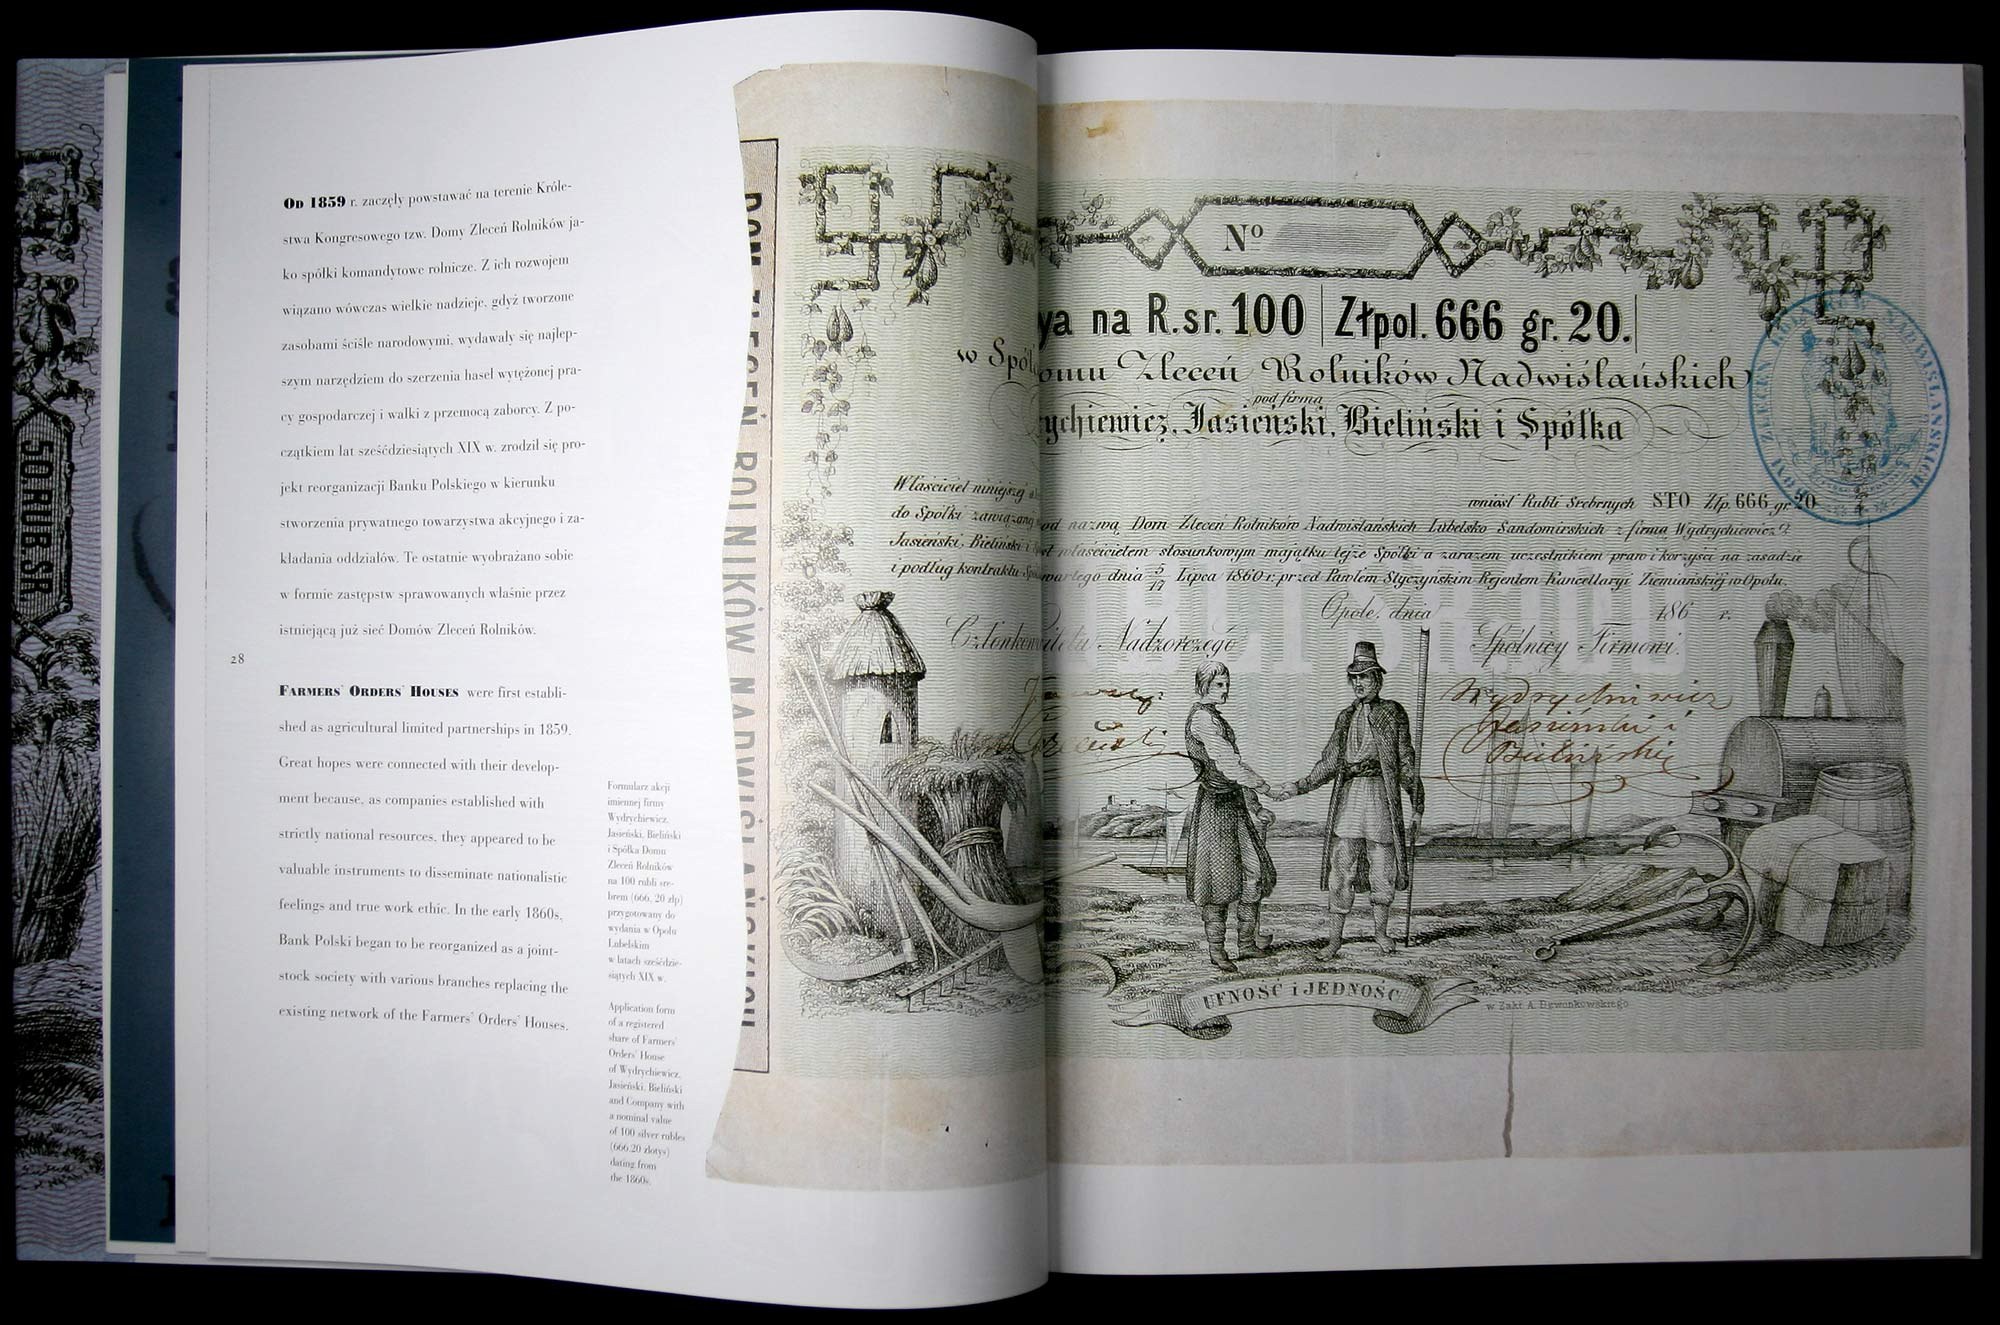 50.RUB.SR
Od 1859 r. zaczęły powstawać na terenie Króle-
stwa Kongresowego tzw. Domy Zleceń Rolników ja-
ko spółki komandytowe rolnicze. Z ich rozwojem
wiązano wówczas wielkie nadzieje, gdyż tworzone
zasobami ściśle narodowymi, wydawały się najlep-
szym narzędziem do szerzenia haseł wytężonej pra-
cy gospodarczej i walki z przemocą zaborcy. Z po-
czątkiem lat sześćdziesiątych XIX w. zrodził się pro-
jekt reorganizacji Banku Polskiego w kierunku
stworzenia prywatnego towarzystwa akcyjnego i za-
kładania oddziałów. Te ostatnie wyobrażano sobie
w formie zastępstw sprawowanych właśnie przez
istniejącą już sieć Domów Zleceń Rolników.
28
Farmers' Orders' Houses were first establi-
shed as agricultural limited partnerships in 1859.
Great hopes were connected with their develop-
ment because, as companies established with
strictly national resources, they appeared to be
valuable instruments to disseminate nationalistic
feelings and true work ethic. In the early 1860s,
Bank Polski began to be reorganized as a joint-
stock society with various branches replacing the
existing network of the Farmers' Orders' Houses.
Formularz akcji
imiennej firmy
Wydrychiewicz,
Jasieński, Bieliński
i Spółka Domu
Zleceń Rolników
na 100 rubli sre-
brem (666, 20 złp)
przygotowany do
wydania w Opolu
Lubelskim
w latach sześćdzie-
siątych XIX w.
Application form
of a registered
share of Farmers'
Orders' House
of Wydrychiewicz,
Jasieński, Bieliński
and Company with
a nominal value
of 100 silver rubles
(666.20 złotys)
dating from
the 1860s.
DOM ZLECEŃ ROLNIKÓW NADWIŚLAŃSKICH
No
ya na R.sr. 100 Złpol. 666 gr. 20.
w Spół omu Zleceń Rolników Nadwiślańskich
pod firmą
rychiewicz, Jasieński, Bieliński i Spółka
Właściciel niniejszej wniósł Rubli Srebrnych STO Złp. 666 gr. 20
do Spółki zawiązanej pod nazwą Dom Zleceń Rolników Nadwiślańskich Lubelsko Sandomirskich z firmą Wydrychiewicz
Jasieński, Bieliński i jest właścicielem stosunkowym majątku tejże Spółki a zarazem uczestnikiem praw i korzyści na zasadzie
i podług kontraktu wartego dnia 5/17 Lipca 1860 r. przed Pawłem Styczyńskim Rejentem Kancellaryi Ziemiańskiej w Opolu.
Opole, dnia 186 r.
Członkowie Nadzorczego Spólnicy Firmowi.
Wydrychiewicz
Jasieński i
Bieliński
UFNOŚĆ i JEDNOŚĆ
w Zakł. A. Dzwonkowskiego
DOM ZLECEŃ ROLNIKÓW NADWIŚLAŃSKICH